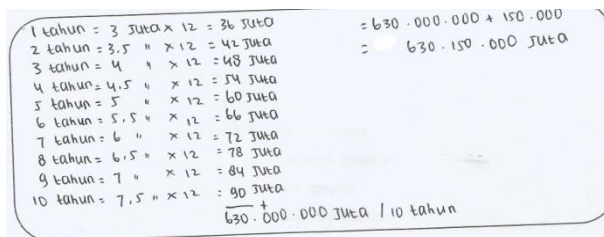 1 tahun = 3 Juta x 12 = 36 Juta
2 tahun = 3.5 " x 12 = 42 Juta
3 tahun = 4 " x 12 = 48 Juta
4 tahun = 4.5 " x 12 = 54 Juta
5 tahun = 5 " x 12 = 60 Juta
6 tahun = 5.5 " x 12 = 66 Juta
7 tahun = 6 " x 12 = 72 Juta
8 tahun = 6.5 " x 12 = 78 Juta
9 tahun = 7 " x 12 = 84 Juta
10 tahun = 7.5 " x 12 = 90 Juta
+
630.000.000 Juta / 10 tahun
= 630.000.000 + 150.000
= 630.150.000 Juta